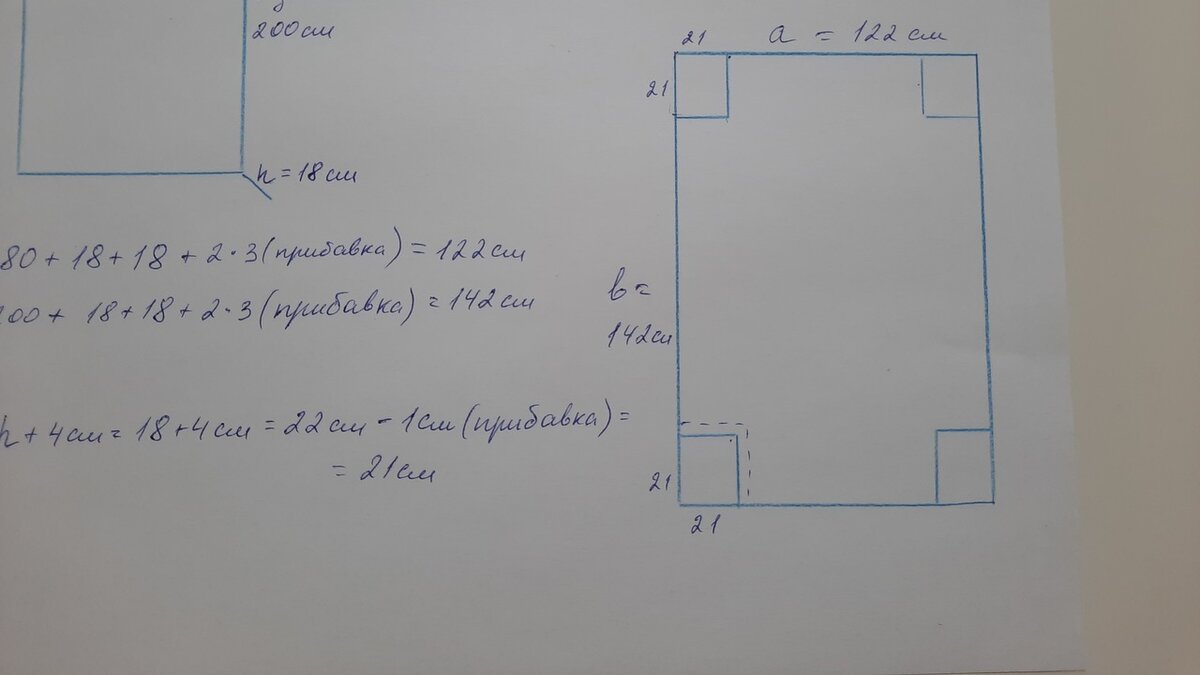 200см
h = 18см
80 + 18 + 18 + 2·3 (прибавка) = 122см
200 + 18 + 18 + 2·3 (прибавка) = 142см
h + 4см = 18 + 4см = 22см - 1см (прибавка) =
= 21см
21 a = 122см
21
b =
142см
21
21